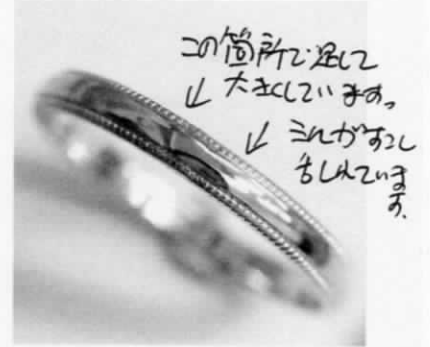 この箇所で足して
大きくしています。
ミルがすこし
ています。